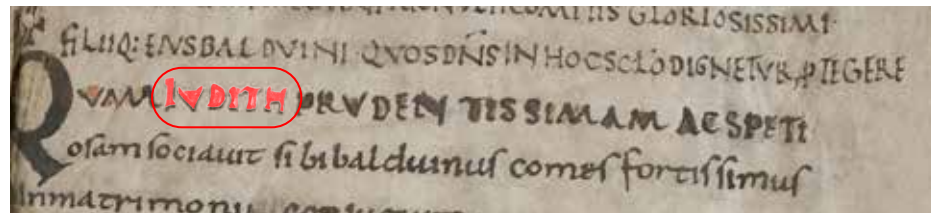 GLORIOSISSIMI
FILIIQ: EIVSBALDVINI QVOSDNS IN HOC SCLO DIGNETVR PTEGERE
QVAM IVDITH PRVDENTISSIMAM AC SPETI
osam sociauit sibi balduinus comes fortissimus
Inmatrimonii